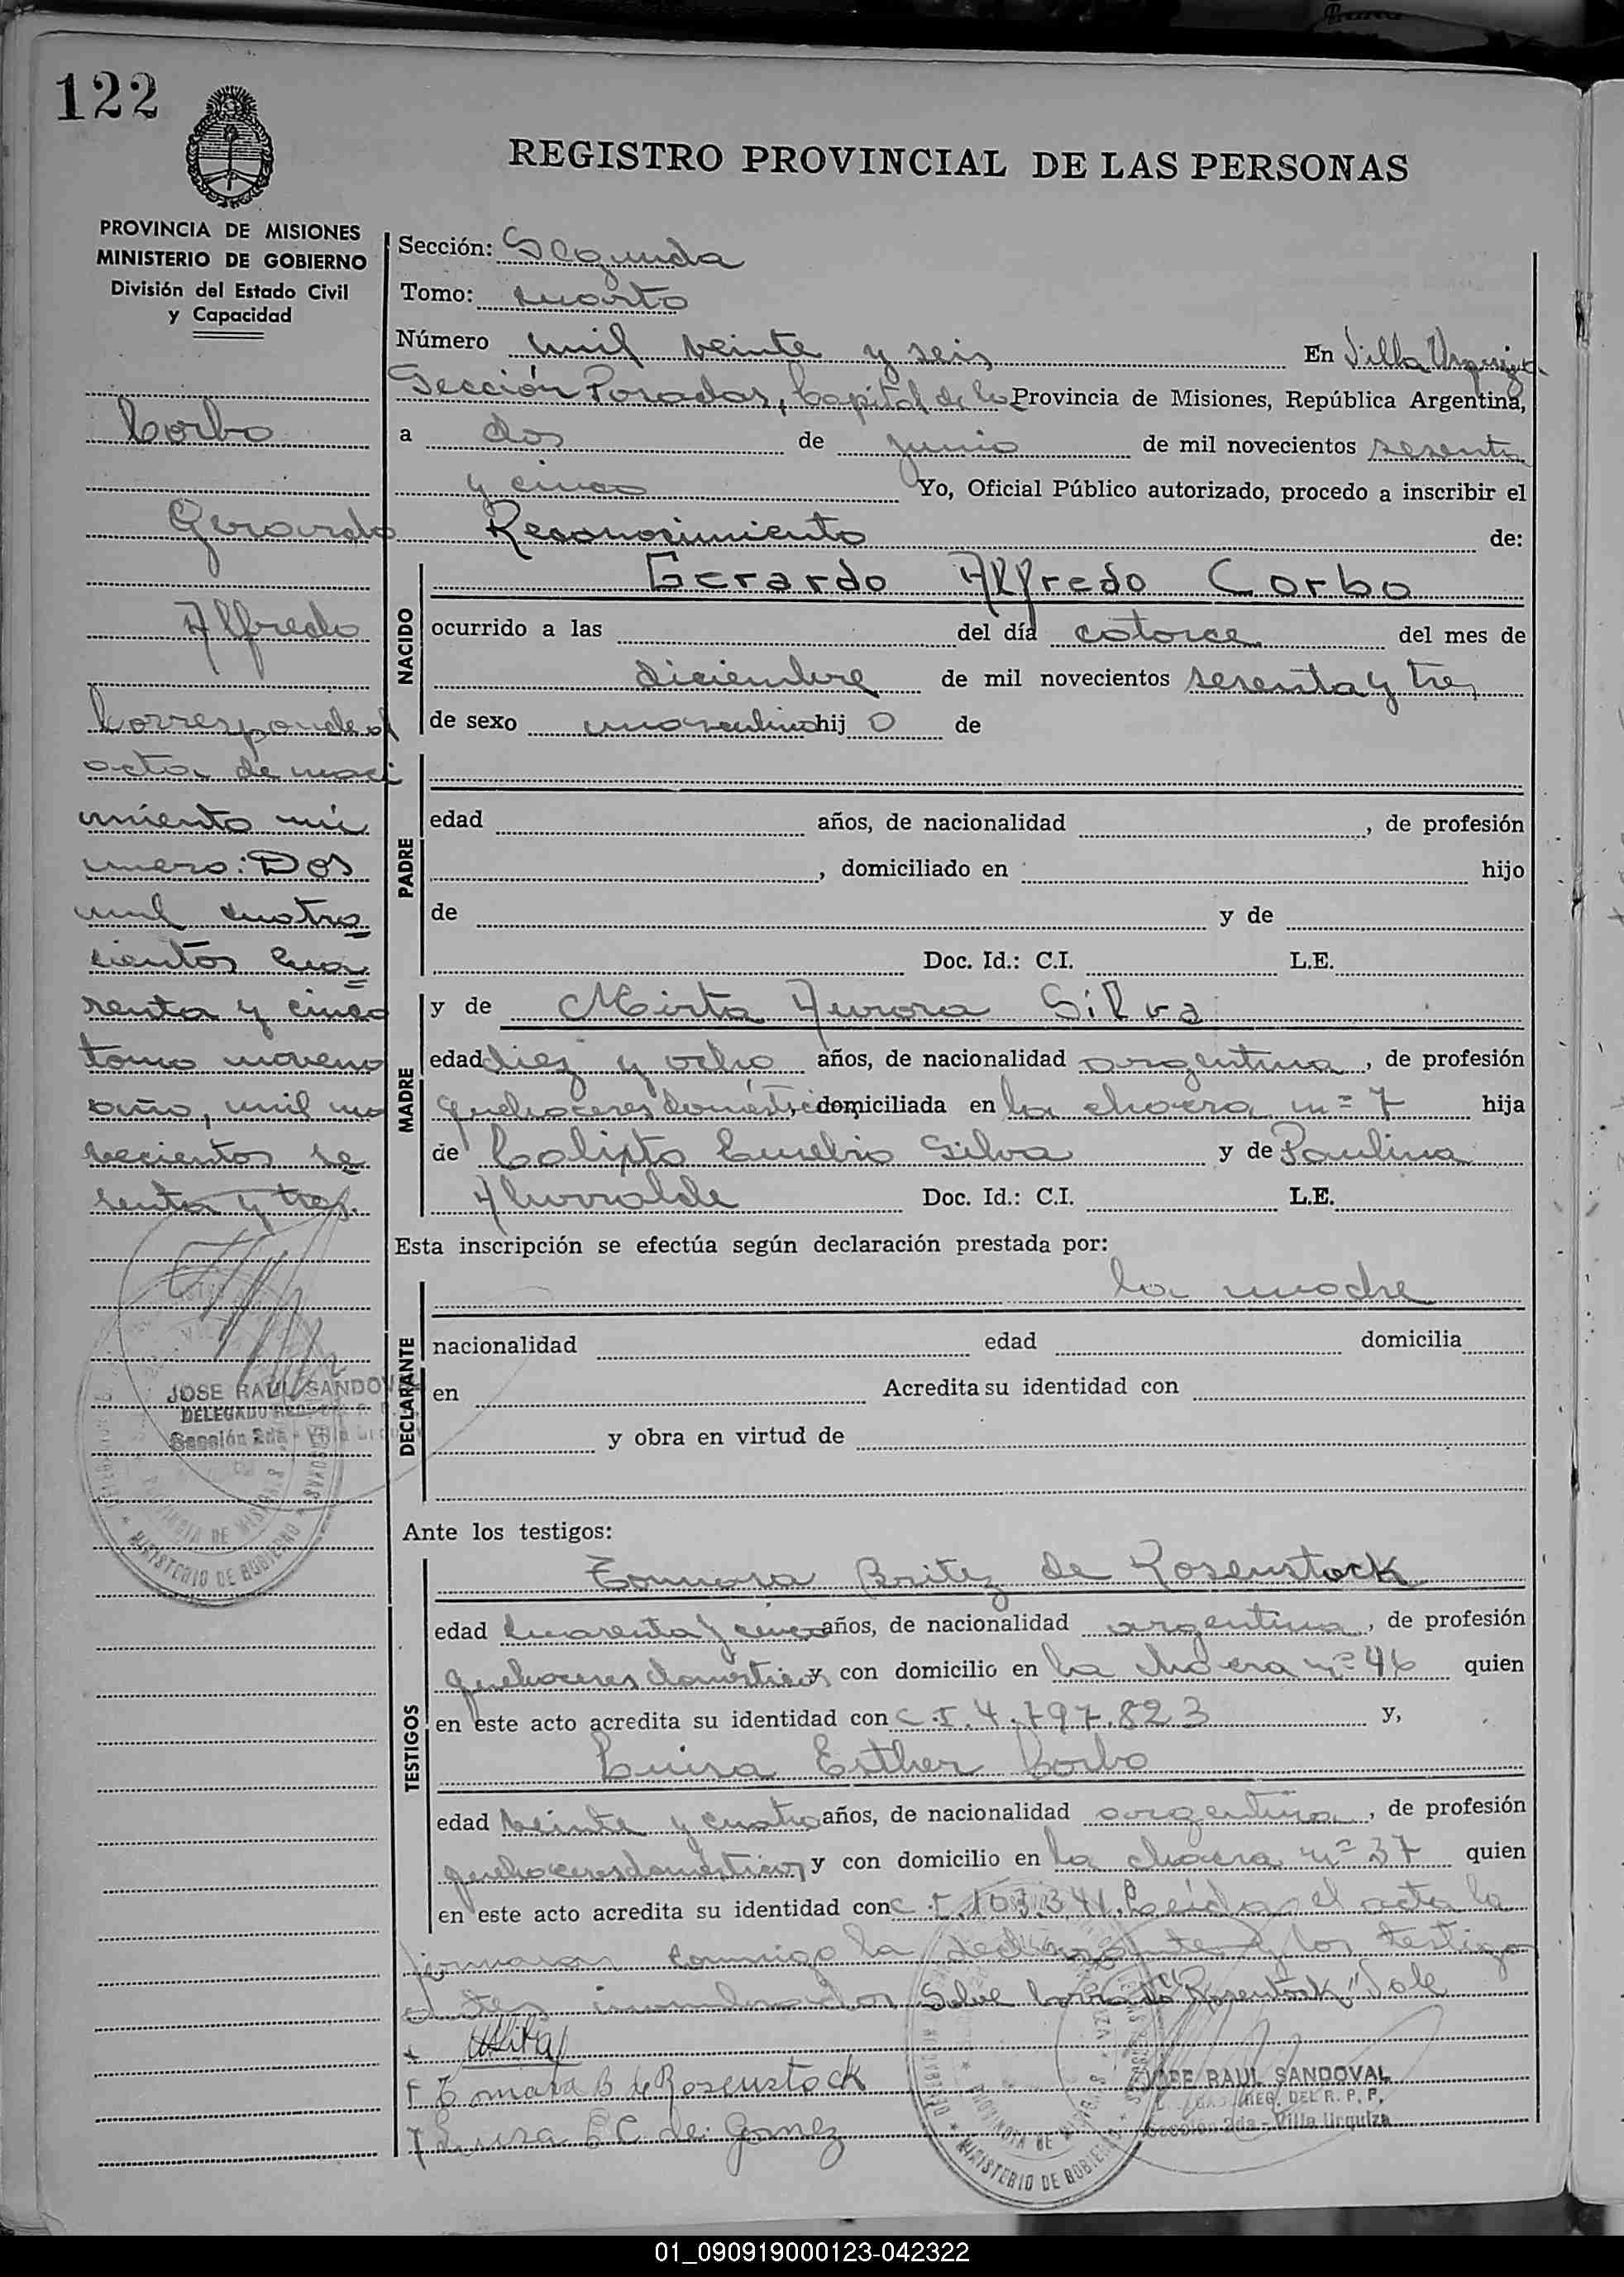 122
REGISTRO PROVINCIAL DE LAS PERSONAS
PROVINCIA DE MISIONES
MINISTERIO DE GOBIERNO
División del Estado Civil
y Capacidad
Corbo
Gerardo
Alfredo
Corresponde al
acta de naci
miento nú
mero: Dos
mil cuatro
cientos cua
renta y cinco
tomo noveno
año, mil no
vecientos se
senta y tres.
JOSE RAUL SANDOVAL
DELEGADO
Sección 2da - Villa
MINISTERIO DE GOBIERNO
PROVINCIA DE MISIONES
Sección: Segunda
Tomo: cuarto
Número mil veinte y seis En Villa Urquiza
Sección Posadas, Capital de la Provincia de Misiones, República Argentina,
a dos de junio de mil novecientos sesenta
y cinco Yo, Oficial Público autorizado, procedo a inscribir el
Reconosimiento de:
NACIDO
Gerardo Alfredo Corbo
ocurrido a las del día catorce del mes de
diciembre de mil novecientos sesenta y tres
de sexo masculino hij o de
PADRE
edad años, de nacionalidad , de profesión
, domiciliado en hijo
de y de
Doc. Id.: C.I. L.E.
MADRE
y de Mirta Aurora Silva
edad diez y ocho años, de nacionalidad argentina, de profesión
quehaceres domésticos domiciliada en la chacra nº 7 hija
de Calixto Eusebio Silva y de Paulina
Doc. Id.: C.I. L.E.
Esta inscripción se efectúa según declaración prestada por:
DECLARANTE
la madre
nacionalidad edad domicilia
en Acredita su identidad con
y obra en virtud de
Ante los testigos:
TESTIGOS
Tomasa Britez de Rosenstock
edad cuarenta y cinco años, de nacionalidad argentina, de profesión
quehaceres domésticos y con domicilio en la chacra nº 46 quien
en este acto acredita su identidad con C.I. 4.797.823 y,
Luisa Esther Corbo
edad veinte y cuatro años, de nacionalidad argentina, de profesión
quehaceres domésticos y con domicilio en la chacra nº 37 quien
en este acto acredita su identidad con C.I. 103.341. Leída el acta la
firmaron conmigo la declarante y los testigo
antes nombrados Sobre borrado "Rosenstock" Vale
Tomasa B de Rosenstock
Luisa E C. de Gomez
JOSE RAUL SANDOVAL
REG. DEL R. P. P.
Sección 2da - Villa Urquiza
MINISTERIO DE GOBIERNO
PROVINCIA DE MISIONES
01_090919000123-042322